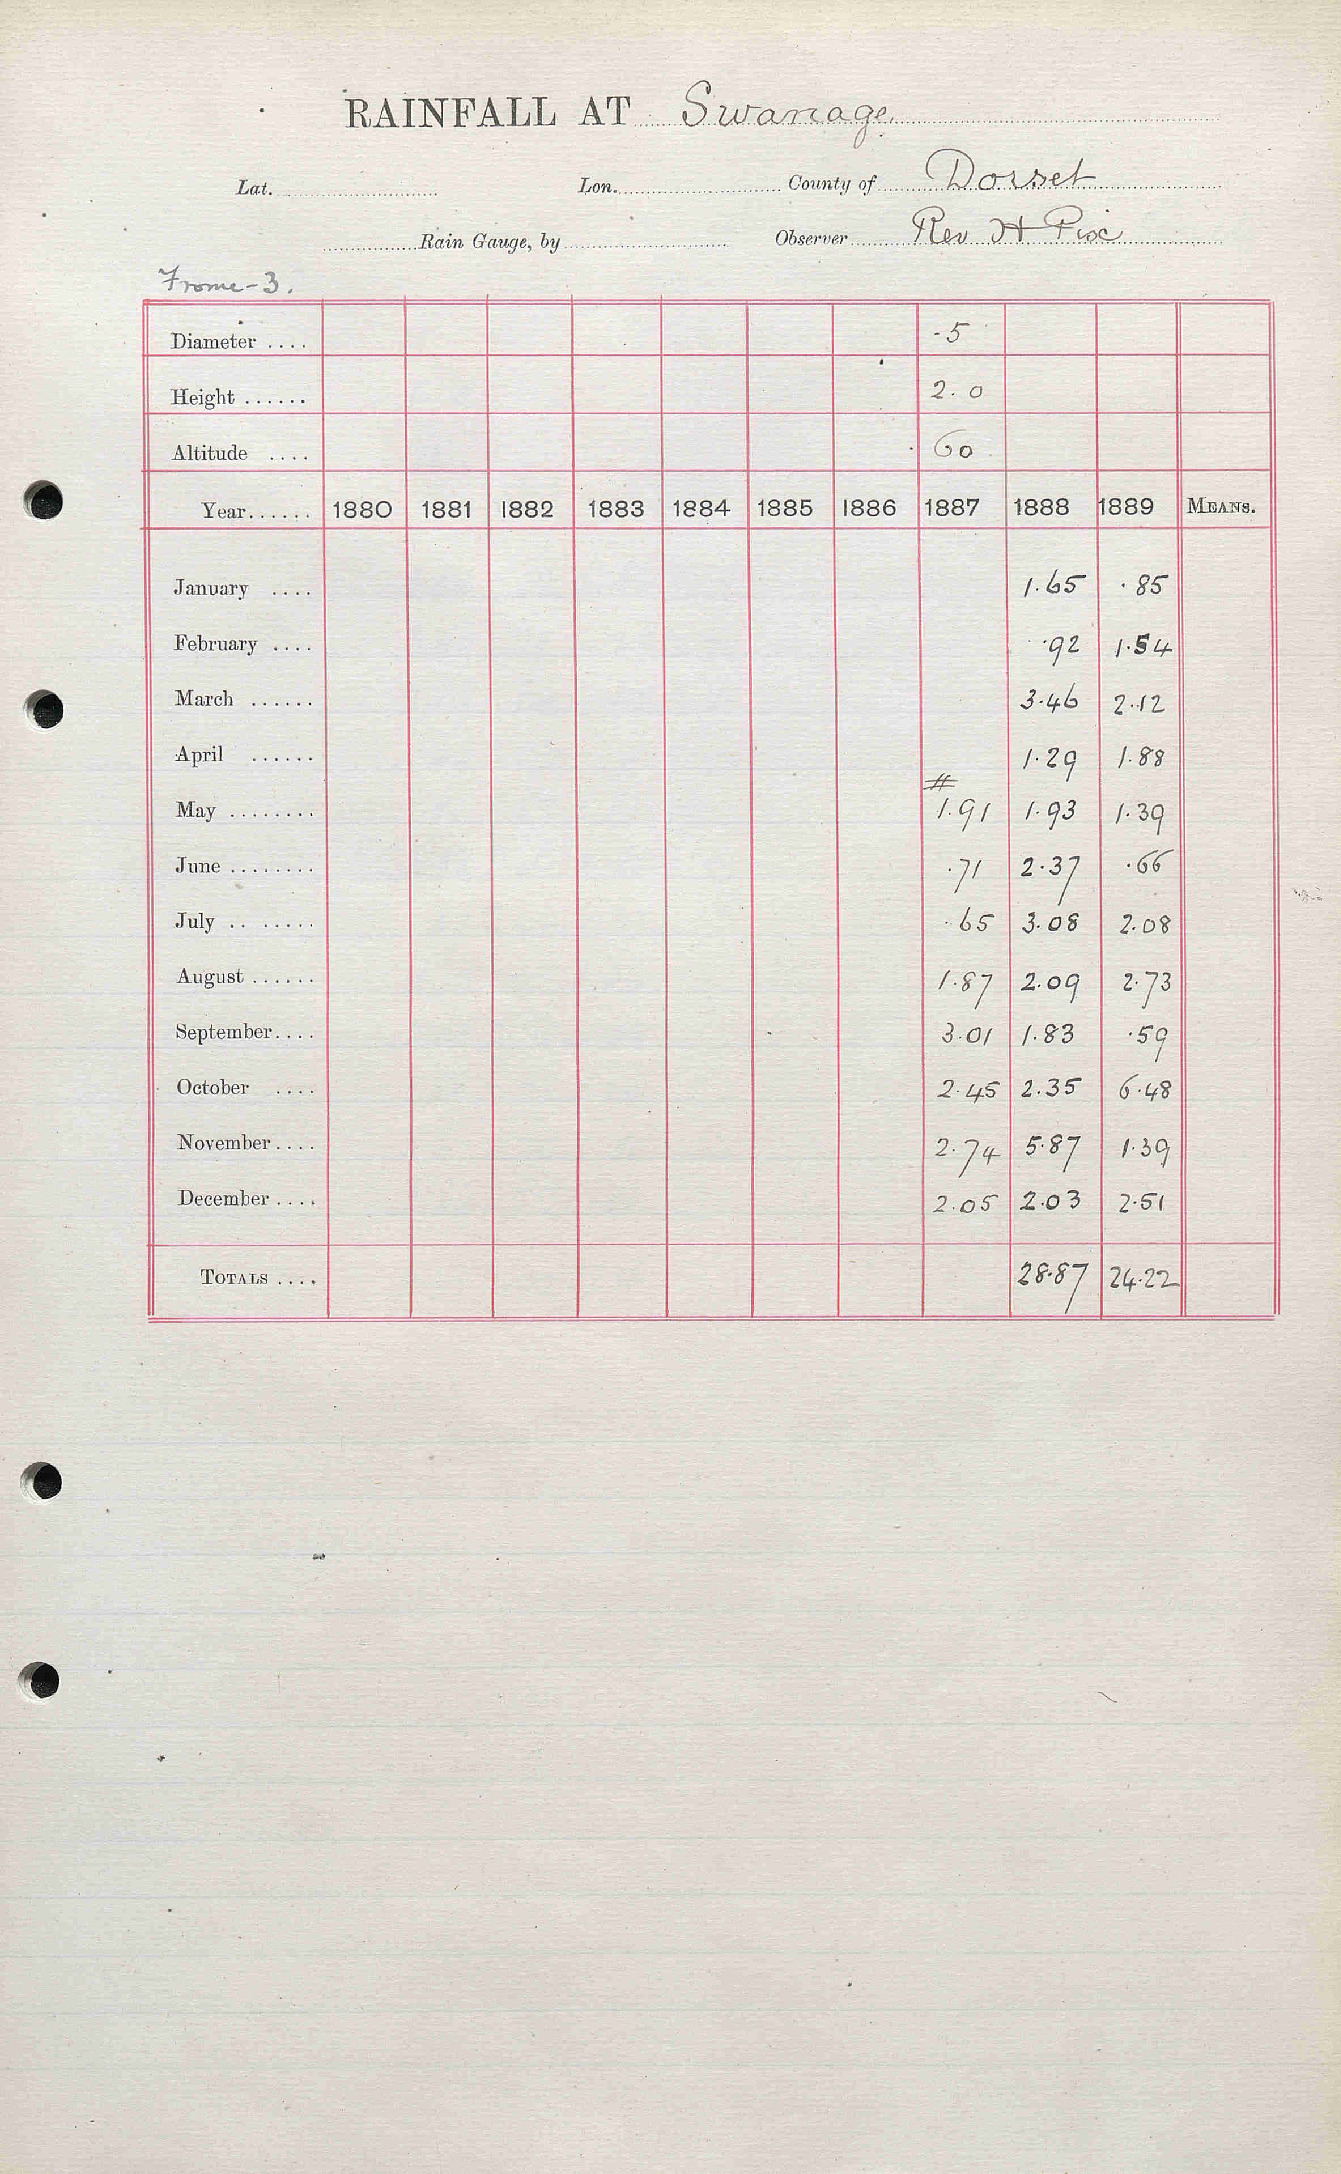 RAINFALL AT Swanage
Lat. Lon. County of Dorset
Rain Gauge, by Observer Rev H Pix
Frome-3.
Diameter .... 5
Height ...... 2.0
Altitude .... 60
Year...... 1880 1881 1882 1883 1884 1885 1886 1887 1888 1889 MEANS.
January .... 1.65 .85
February .... .92 1.54
March ...... 3.46 2.12
April ...... 1.29 1.88
#
May ........ 1.91 1.93 1.39
June ........ .71 2.37 .66
July .. ...... .65 3.08 2.08
August ...... 1.87 2.09 2.73
September.... 3.01 1.83 .59
October .... 2.45 2.35 6.48
November.... 2.74 5.87 1.39
December.... 2.05 2.03 2.51
TOTALS .... 28.87 24.22